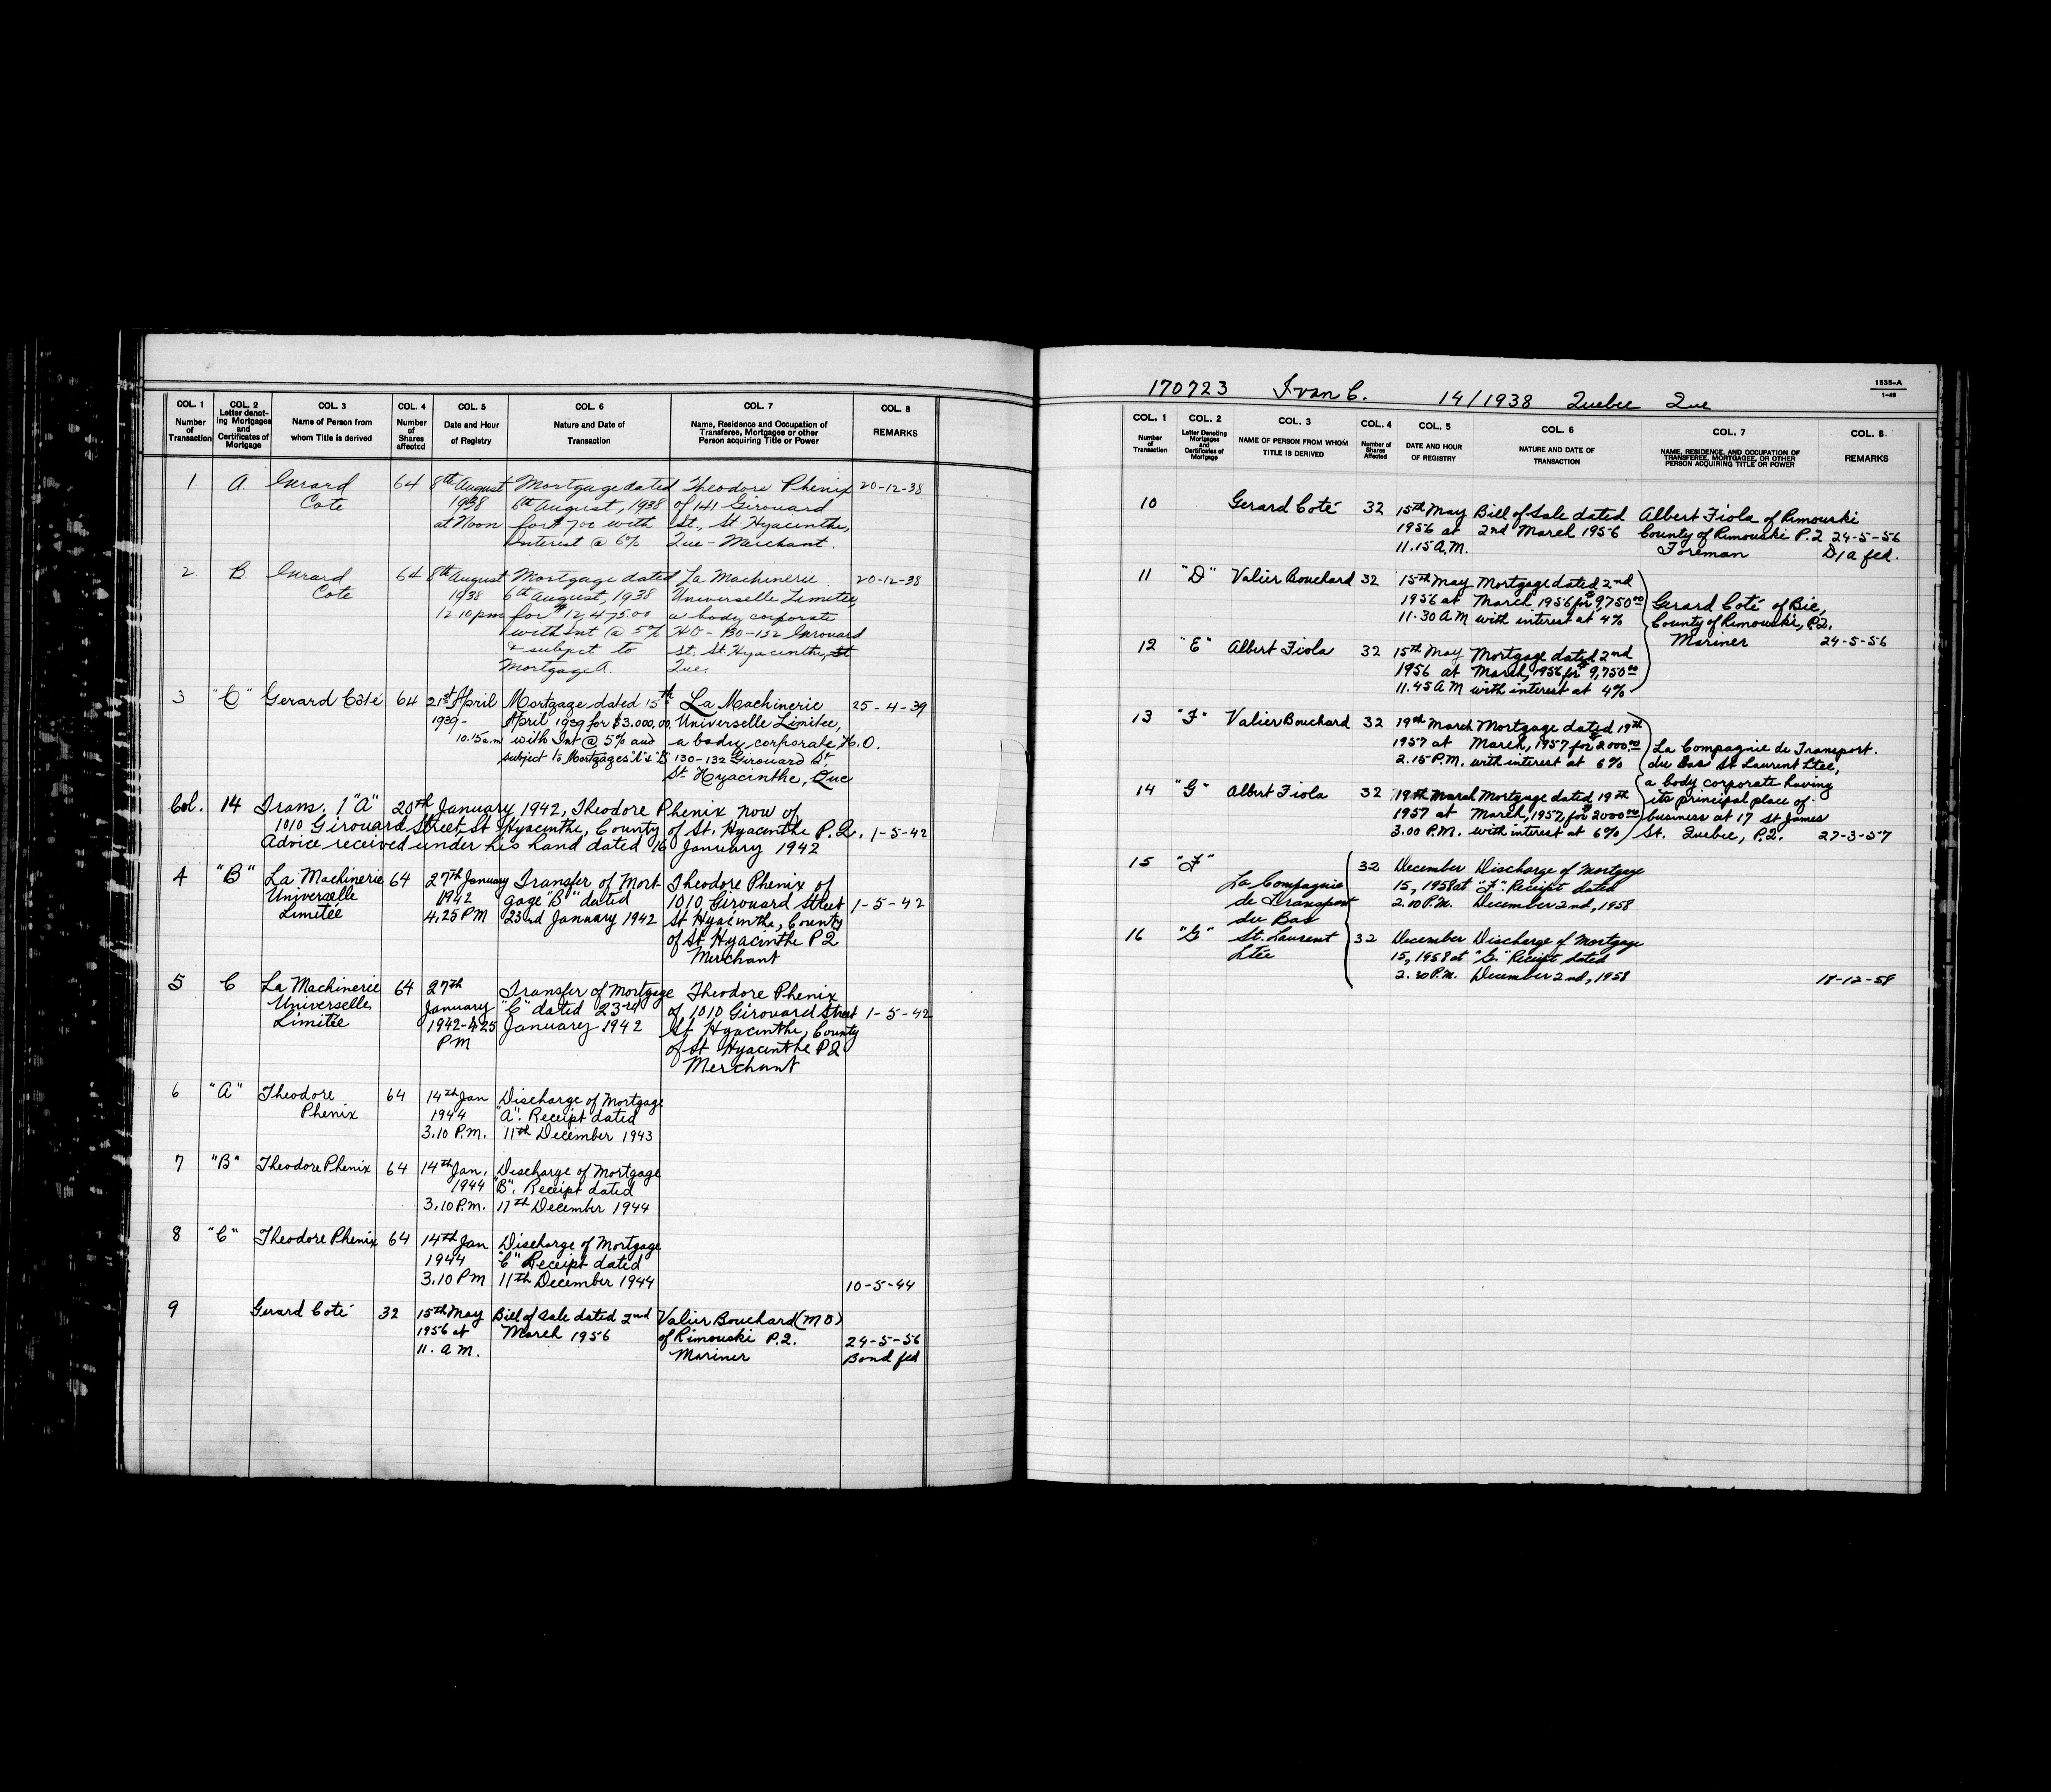 COL. 1 COL. 2 COL. 3 COL. 4 COL. 5 COL. 6 COL. 7 COL. 8
Number of Transaction
Letter denoting Mortgages and Certificates of Mortgage
Name of Person from whom Title is derived
Number of Shares affected
Date and Hour of Registry
Nature and Date of Transaction
Name, Residence and Occupation of Transferee, Mortgagee or other Person acquiring Title or Power
REMARKS
1. A Gerard 64 8th August Mortgage dated Theodore Phenix 20-12-38
Cote 1938 6th August, 1938 of 141 Girouard
at Noon for $700 with St., St. Hyacinthe,
Interest @ 6% Que - Merchant.
2 B Gerard 64 8th August Mortgage dated La Machinerie 20-12-38
Cote 1938 6th August, 1938 Universelle Limitee,
12.10 pm for $12,475.00 a body corporate
with Int @ 5% HO - 130-132 Girouard
& subject to St. St. Hyacinthe, St
Mortgage A. Que.
3 "C" Gerard Côté 64 21st April Mortgage dated 15th La Machinerie 25-4-39
1939- April 1939 for $3.000.00 Universelle Limitee,
10.15 a.m with Int @ 5% and a body corporate, H.O.
subject to Mortgages "A" & "B" 130-132 Girouard St
St. Hyacinthe, Que
Col. 14 Trans. 1 "A" 20th January 1942, Theodore Phenix now of
1010 Girouard Street St Hyacinthe, County of St. Hyacinthe P.Q. 1-5-42
Advice received under his hand dated 16 January 1942
4 "B" La Machinerie 64 27th January Transfer of Mort- Theodore Phenix of
Universelle 1942 gage "B" dated 1010 Girouard Street 1-5-42
Limitée 4.25 PM 23rd January 1942 St Hyacinthe, County
of St Hyacinthe P Q
Merchant
5 C La Machinerie 64 27th Transfer of Mortgage Theodore Phenix
Universelle January "C" dated 23rd of 1010 Girouard Street 1-5-42
Limitée 1942-4.25 January 1942 St Hyacinthe, County
PM of St Hyacinthe P Q
Merchant
6 "A" Theodore 64 14th Jan Discharge of Mortgage
Phenix 1944 "A". Receipt dated
3.10 P.M. 11th December 1943
7 "B" Theodore Phenix 64 14th Jan. Discharge of Mortgage
1944 "B". Receipt dated
3.10 P.M. 17th December 1944
8 "C" Theodore Phenix 64 14th Jan Discharge of Mortgage
1944 "C" Receipt dated
3.10 PM 11th December 1944 10-5-44
9 Gerard Coté 32 15th May Bill of Sale dated 2nd Valier Bouchard (MO)
1956 at March 1956 of Rimouski P.Q. 24-5-56
11. A M. Mariner Bond fed
170723 Ivan C. 14/1938 Quebec Que
1535-A
1-49
COL. 1 COL. 2 COL. 3 COL. 4 COL. 5 COL. 6 COL. 7 COL. 8
Number of Transaction
Letter Denoting Mortgages and Certificates of Mortgage
NAME OF PERSON FROM WHOM TITLE IS DERIVED
Number of Shares Affected
DATE AND HOUR OF REGISTRY
NATURE AND DATE OF TRANSACTION
NAME, RESIDENCE, AND OCCUPATION OF TRANSFEREE, MORTGAGEE, OR OTHER PERSON ACQUIRING TITLE OR POWER
REMARKS
10 Gerard Coté 32 15th May Bill of Sale dated Albert Fiola of Rimouski
1956 at 2nd March 1956 County of Rimouski P.Q 24-5-56
11.15 A.M. Foreman D/a fed.
11 "D" Valier Bouchard 32 15th May Mortgage dated 2nd
1956 at March 1956 for $9,750.00 Gerard Coté of Bic,
11.30 A M with interest at 4% County of Rimouski, P.Q.
Mariner 24-5-56
12 "E" Albert Fiola 32 15th May Mortgage dated 2nd
1956 at March, 1956 for $9,750.00
11.45 A M with interest at 4%
13 "F" Valier Bouchard 32 19th March Mortgage dated 19th
1957 at March, 1957 for $2000.00 La Compagnie de Transport.
2.15 P.M. with interest at 6% du Bas St Laurent Ltee,
a body corporate having
14 "G" Albert Fiola 32 19th March Mortgage dated 19th its principal place of
1957 at March, 1957, for $2000.00 business at 17 St James
3.00 P.M. with interest at 6% St. Quebec, P.Q. 27-3-57
15 "F" 32 December Discharge of Mortgage
La Compagnie 15, 1958 at "F". Receipt dated
de Transport 2.00 P.M. December 2nd, 1958
du Bas
16 "G" St. Laurent 32 December Discharge of Mortgage
Ltée 15, 1958 at "G." Receipt dated
2.30 P.M. December 2nd, 1958 18-12-58